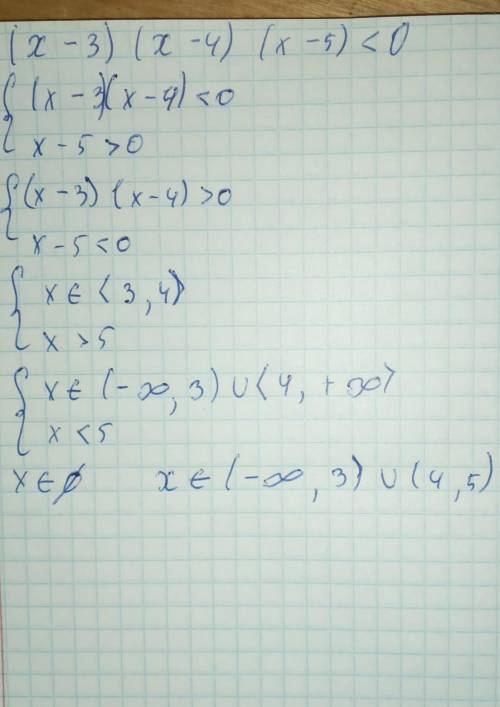 (x - 3) (x - 4) (x - 5) < 0
{ (x - 3)(x - 4) < 0
x - 5 > 0
{ (x - 3) (x - 4) > 0
x - 5 < 0
{ x ∈ (3, 4)
x > 5
{ x ∈ (-∞, 3) ∪ (4, +∞)
x < 5
x ∈ ∅ x ∈ (-∞, 3) ∪ (4, 5)